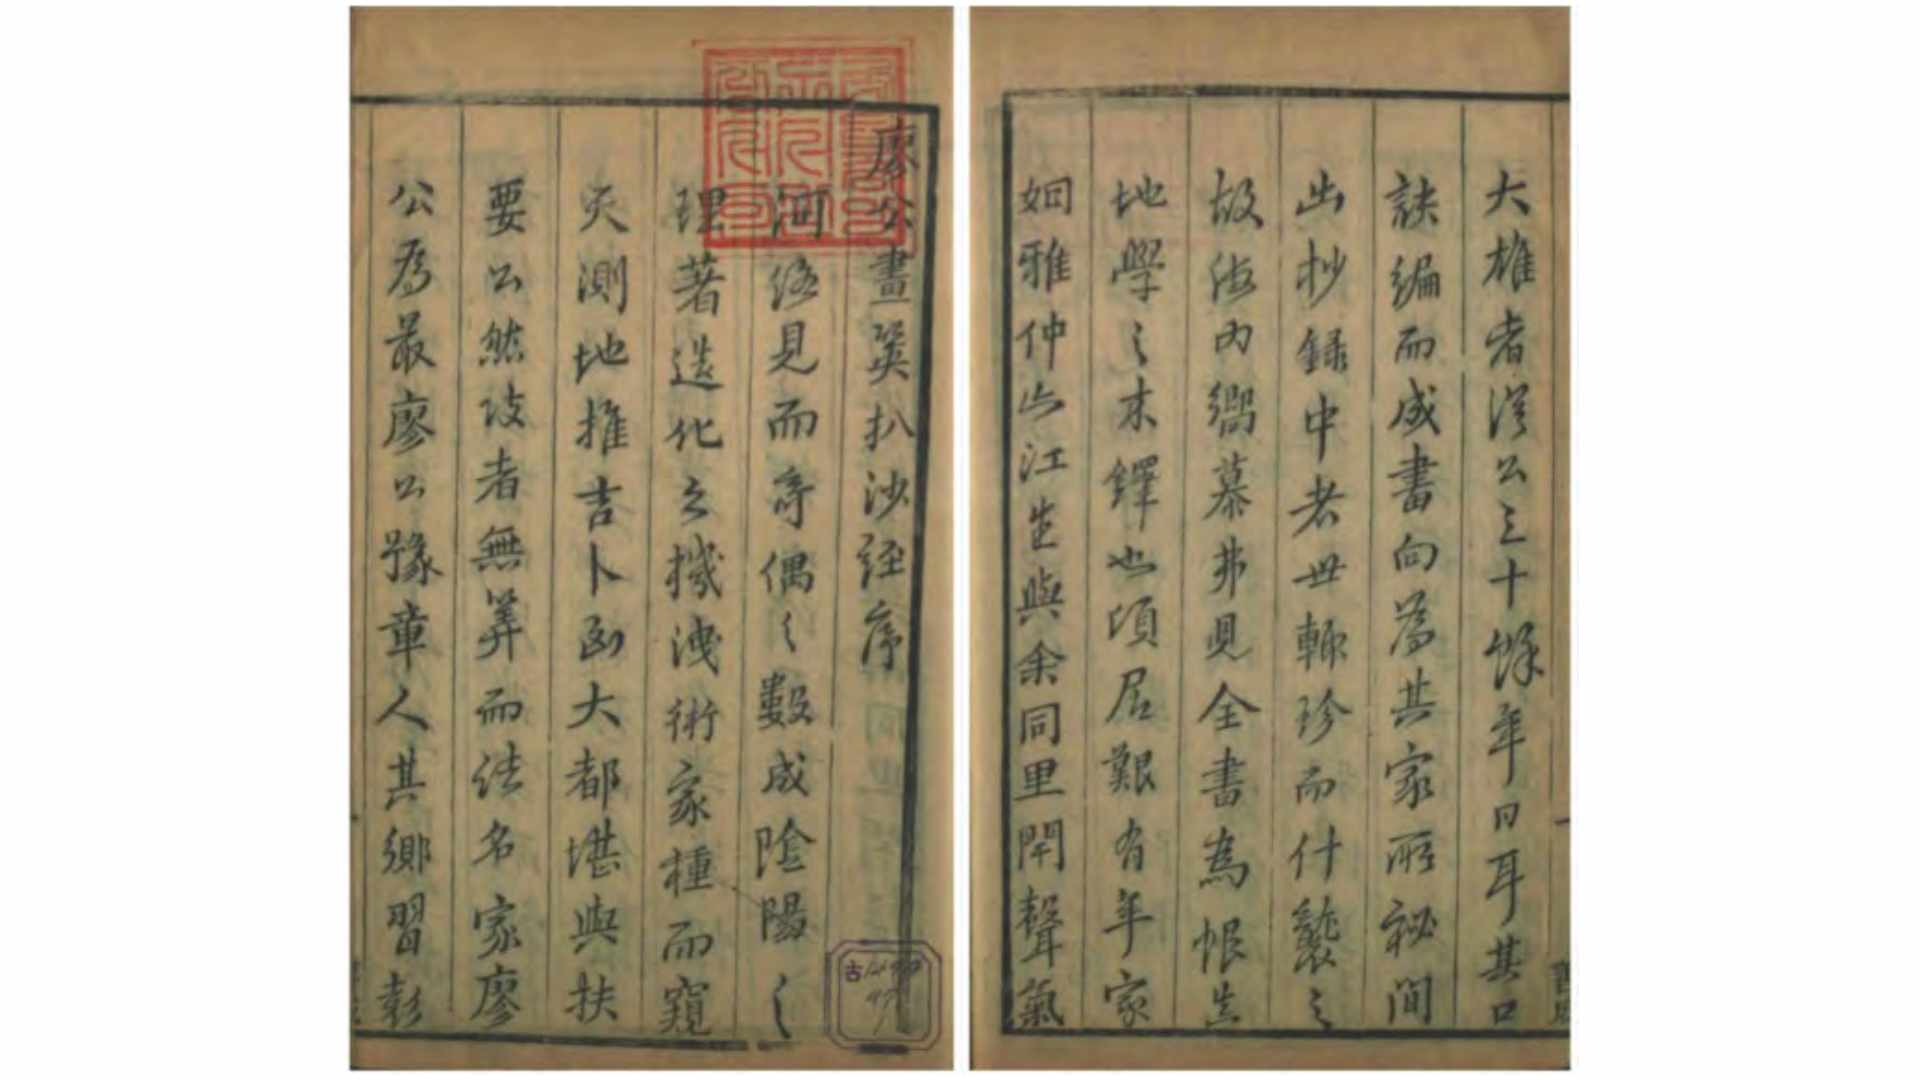 廖公畫筴扒沙經序
河洛見而奇偶之數成陰陽之
理著造化之機洩術家種而窺
天測地推吉卜凶大都堪輿扶
要公然攻者無筭而法名家廖
公為最廖公豫章人其鄉習彭
大雄者從公三十餘年口耳其口
訣編而成書向為其家所祕間
出抄錄中者世輒珍而什襲之
故海內嚮慕弗見全書為恨豈
地學之木鐸也頃居艱有年家
姻雅仲山江生與余同里閈聲氣